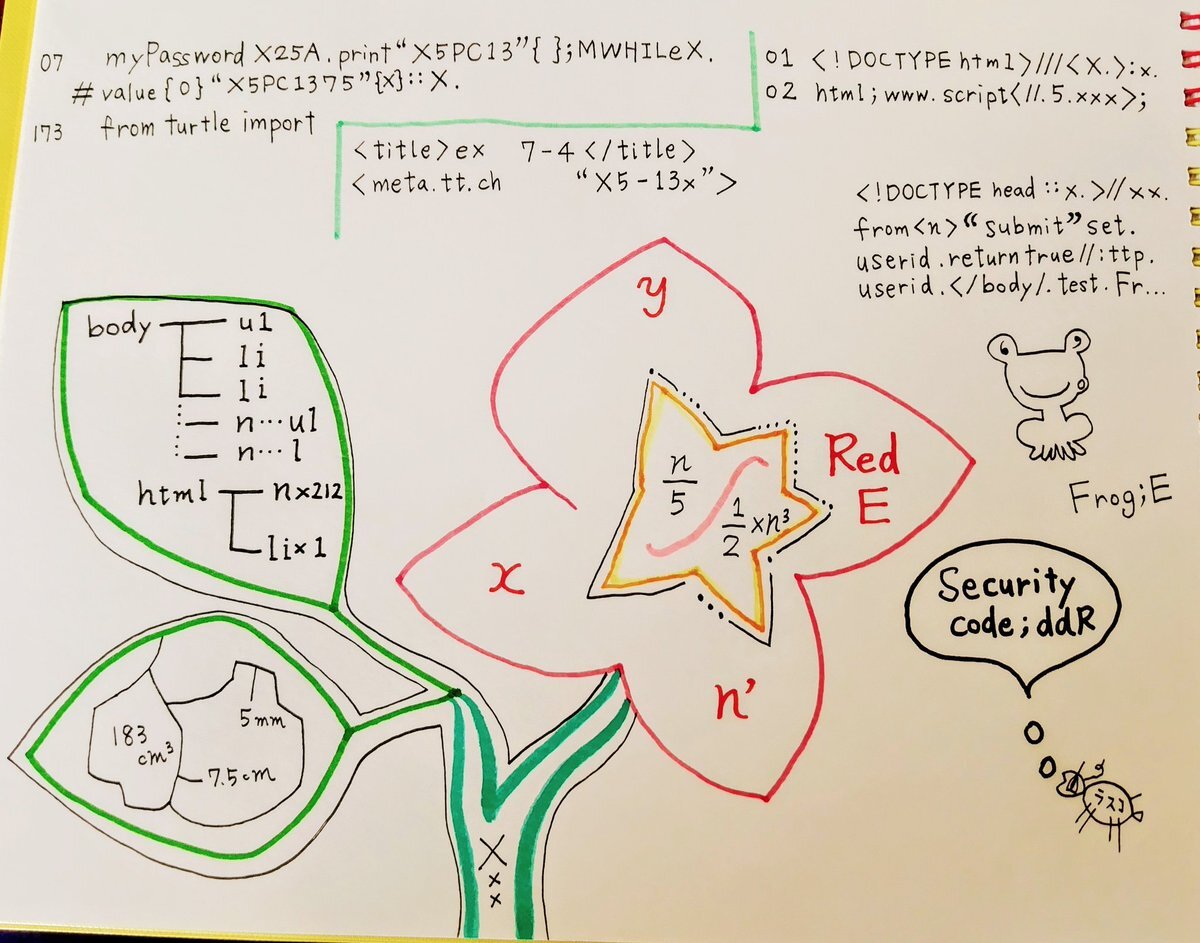 07 myPassword X25A.print“X5PC13”{ };MWHILeX.
# value{0}“X5PC1375”{x}::X.
173 from turtle import
01 <!DOCTYPE html>///<X.>:x.
02 html;www.script<//.5.xxx>;
<title>ex 7-4</title>
<meta.tt.ch “X5-13x”>
<!DOCTYPE head::x.>//xx.
from<n>“submit”set.
userid.returntrue//:ttp.
userid.</body/.test.Fr...
body ul
li
li
n...ul
n...l
html nx212
lix1
y
Red
E
x
n’
n/5
1/2 xn³
Frog;E
Security
code;ddR
ラスコ
183
cm³
5mm
7.5cm
X
x
x